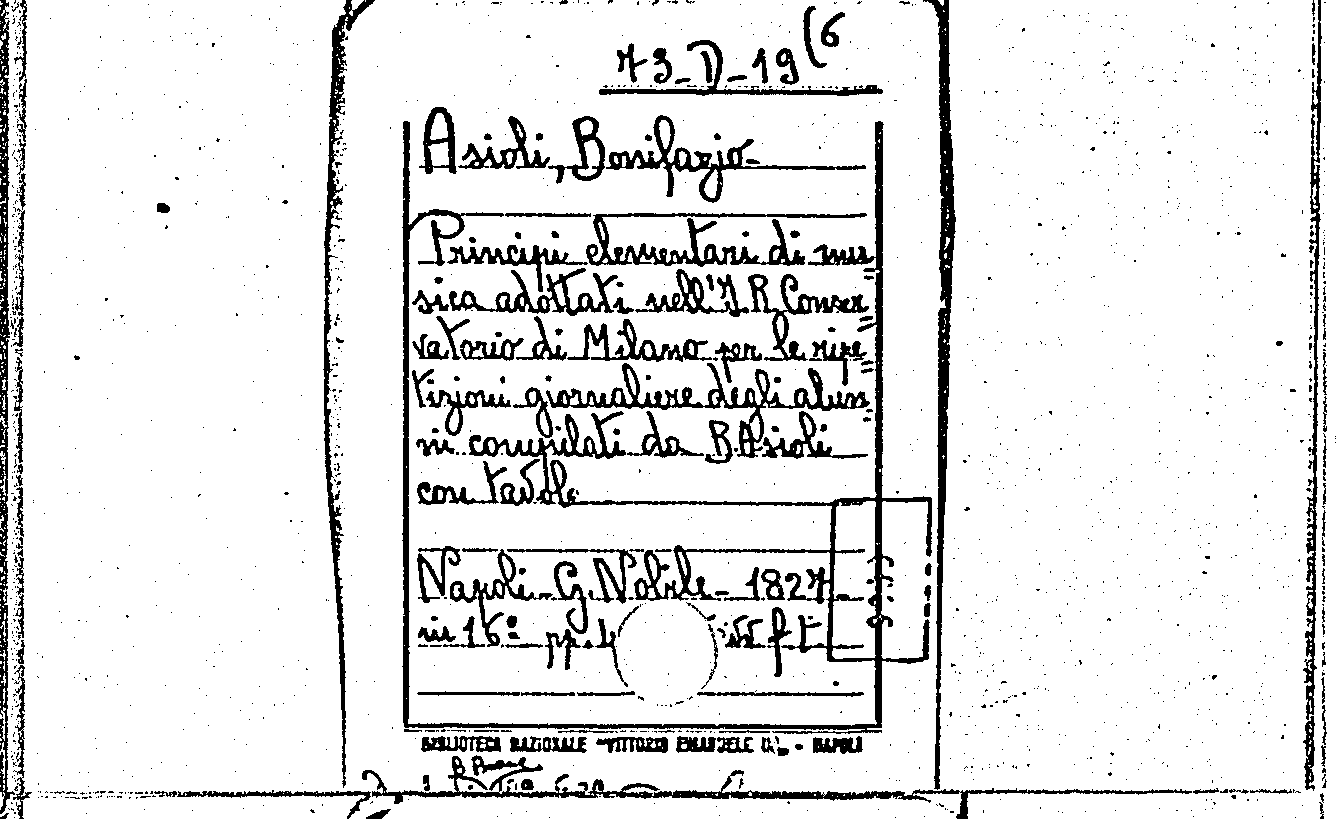 73-D-19(6
Asioli, Bonifazio-
Principi elementari di mu=
sica adottati nell'I.R. Conser=
vatorio di Milano per le ripe=
tizioni giornaliere degli alun=
ni compilati da B. Asioli
con tavole
Napoli - G. Nobile - 1827-
in 16º pp.
BIBLIOTECA NAZIONALE "VITTORIO EMANUELE III" - NAPOLI